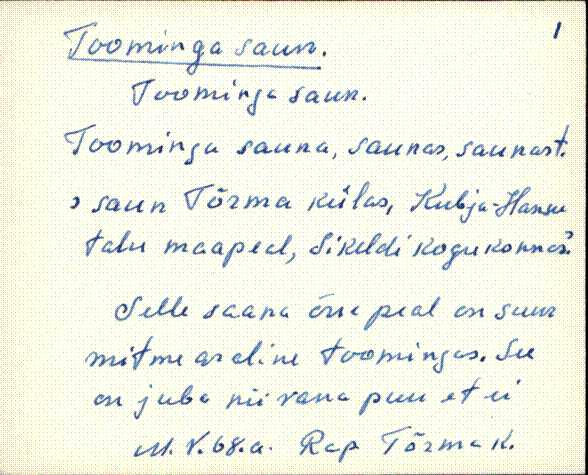 1
Toominga saun.
Toominga saun.
Toominga sauna, saunas, saunast.
saun Tõrma külas, Kubja-Hansu
talu maapeal, Sikeldi kogukonnas.
Selle sauna õue peal on suur
mitme araline toomingas. See
on juba nii vana puu et ei
M. V. 68. a. Rap Tõrma k.